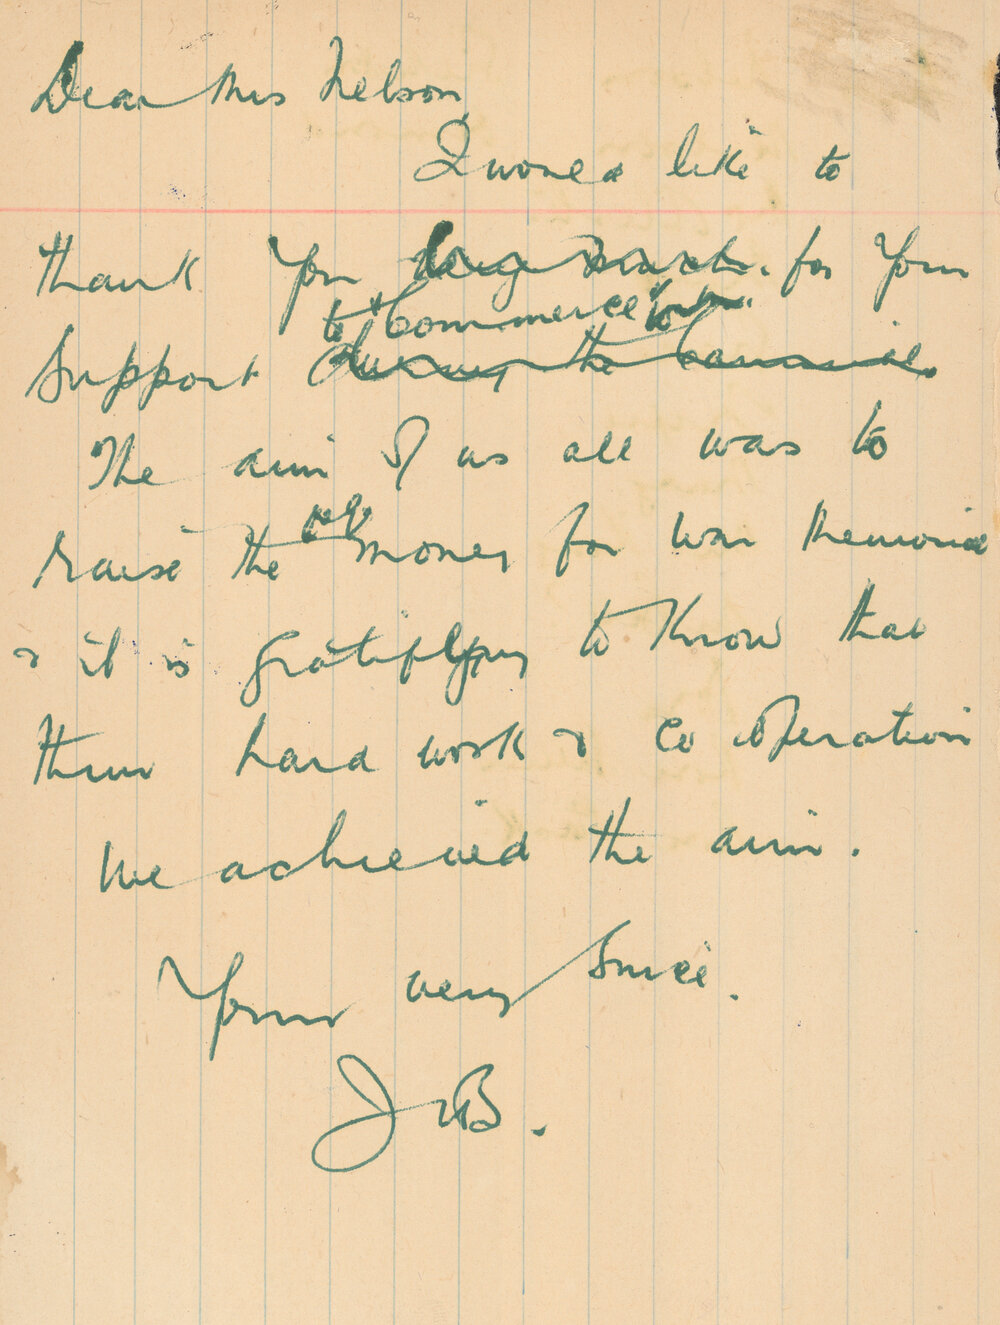 Dear Mrs Nelson,
I would like to
thank you very much. for your
to Commerce
support during the Carnival.
The aim of us all was to
raise the money for War Memorial
& it is gratifying to know that
thru hard work & co operation
we achieved the aim.
Yours very Since.
J B.